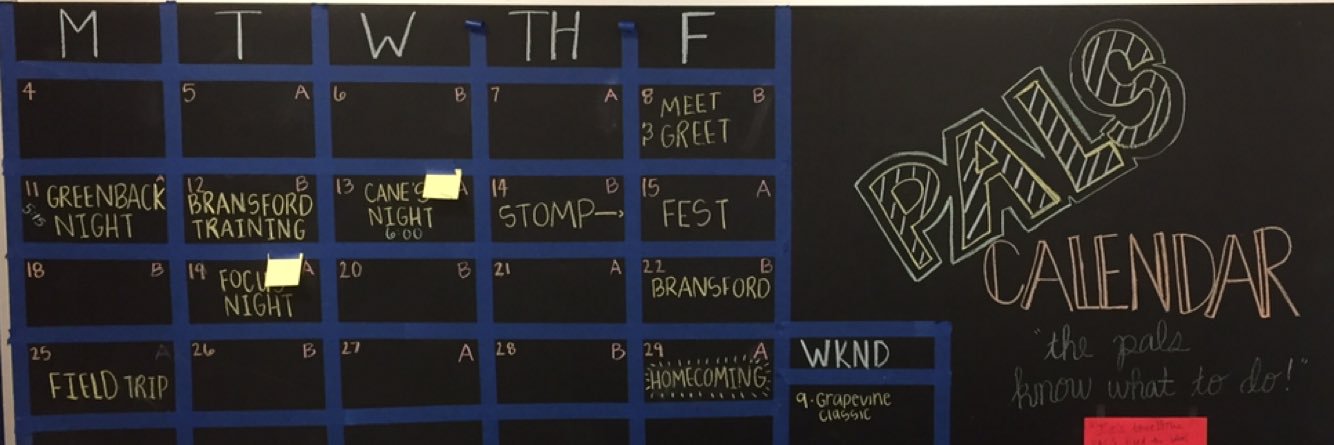 M T W TH F
4 5 A 6 B 7 A 8 B
MEET
& GREET
11 A 12 B 13 A 14 B 15 A
GREENBACK
5:15 NIGHT
BRANSFORD
TRAINING
CANE'S
NIGHT
6:00
STOMP→
FEST
18 B 19 A 20 B 21 A 22 B
FOCUS
NIGHT
BRANSFORD
25 A 26 B 27 A 28 B 29 A
FIELD TRIP
HOMECOMING
WKND
9 · Grapevine
Classic
PALS
CALENDAR
"the pals
know what to do!"